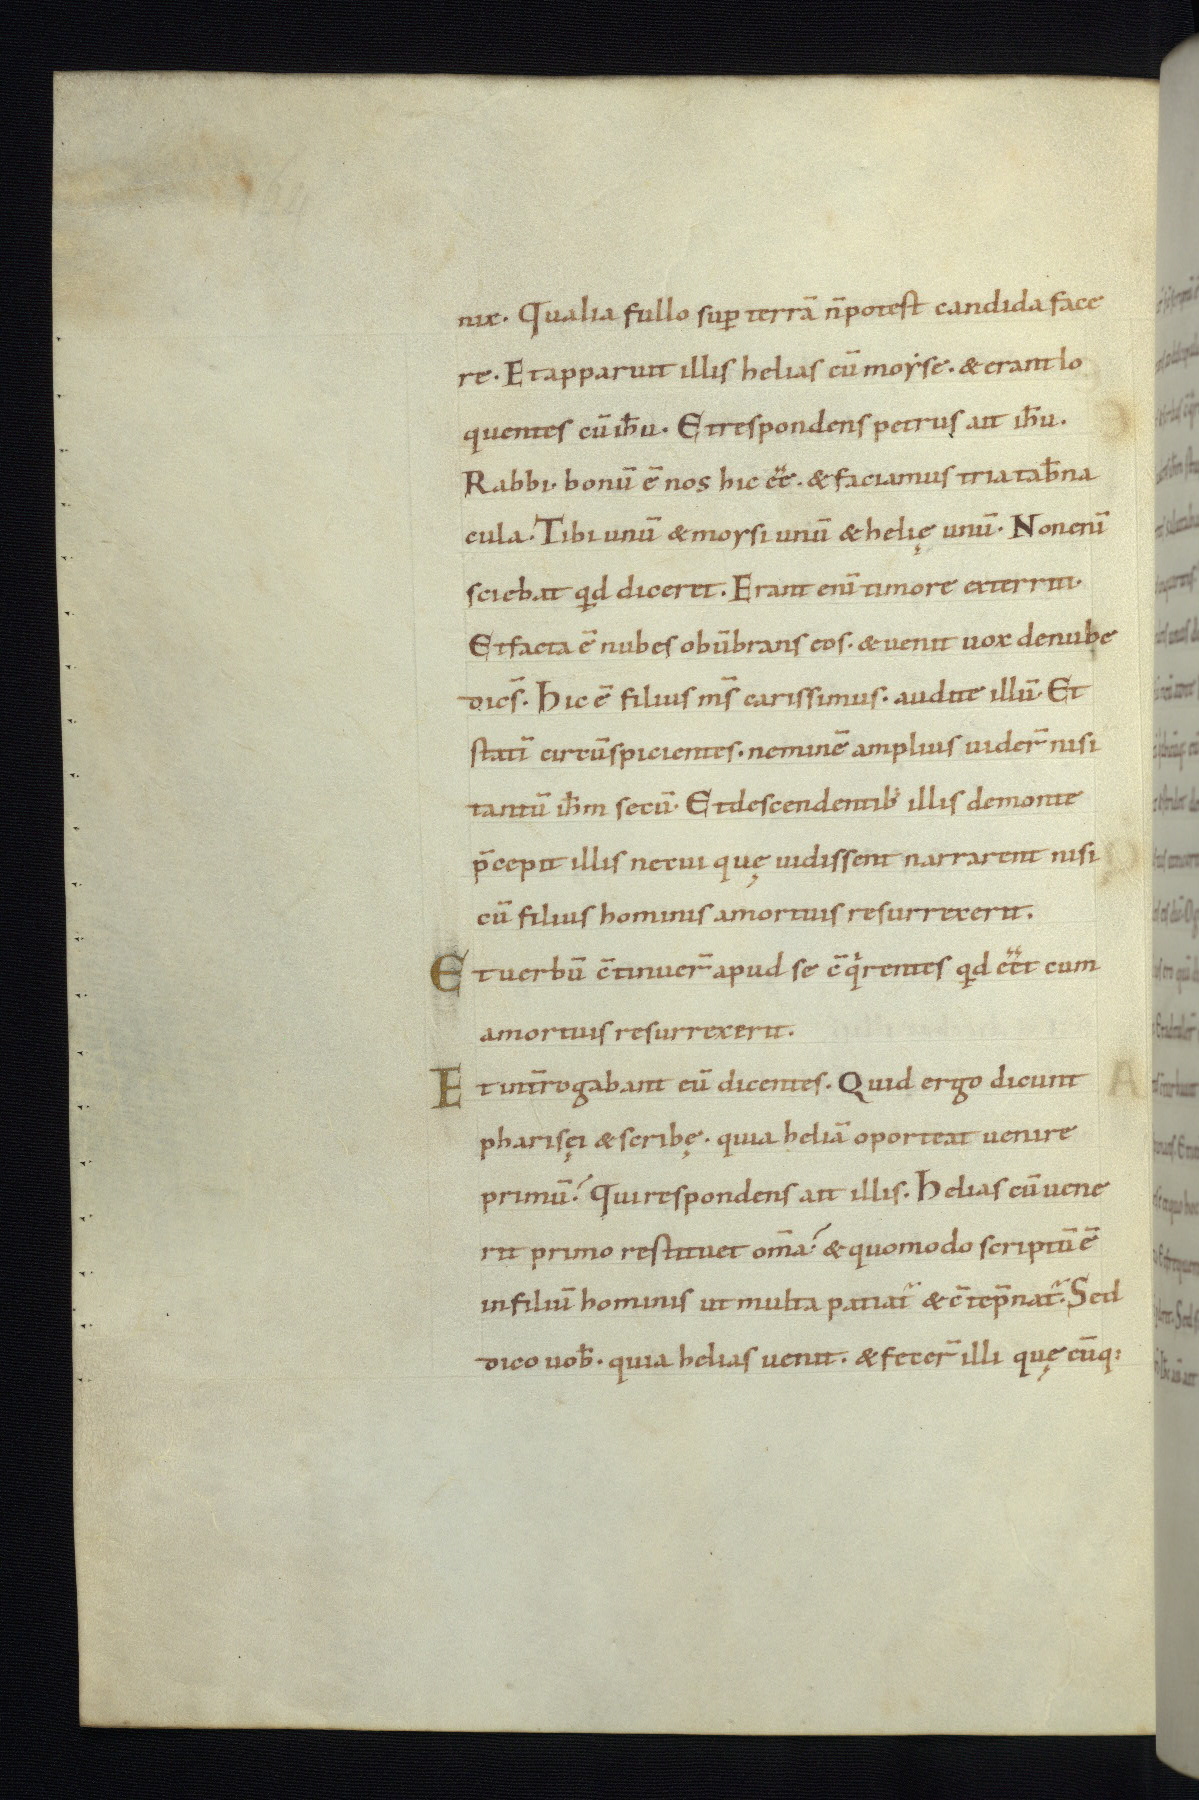 nix. Qualia fullo sup terrā n̄potest candida face
re. Et apparuit illis helias cū moyse. & erant lo
quentes cū ih̄u. Et respondens petrus ait ih̄u.
Rabbi. bonū ē nos hic ēē. & faciamus tria tab̄na
cula. Tibi unū & moysi unū & helię unū. Non enī
sciebat qd diceret. Erant enī timore exterriti.
Et facta ē nubes obūbrans eos. & uenit uox denube
dicēs. Hic ē filius m̄s carissimus. audite illū. Et
statī circūspicientes. neminē amplius uider̄ nisi
tantū ih̄m secū. Et descendentib; illis demonte
p̄cepit illis necui quę uidissent narrarent nisi
cū filius hominis amortuis resurrexerit.
Et uerbū c̄tinuer̄ apud se c̄qͥrentes qd ēēt cum
amortuis resurrexerit.
Et int̄rogabant eū dicentes. Quid ergo dicunt
pharisęi & scribę. quia heliā oporteat uenire
primū? Qui respondens ait illis. Helias cū uene
rit primo restituet om̄a? & quomodo scriptū ē
infiliū hominis ut multa patiat̄ & c̄tēpnat̄. Sed
dico uob̄. quia helias uenit. & fecer̄ illi quę cūq;